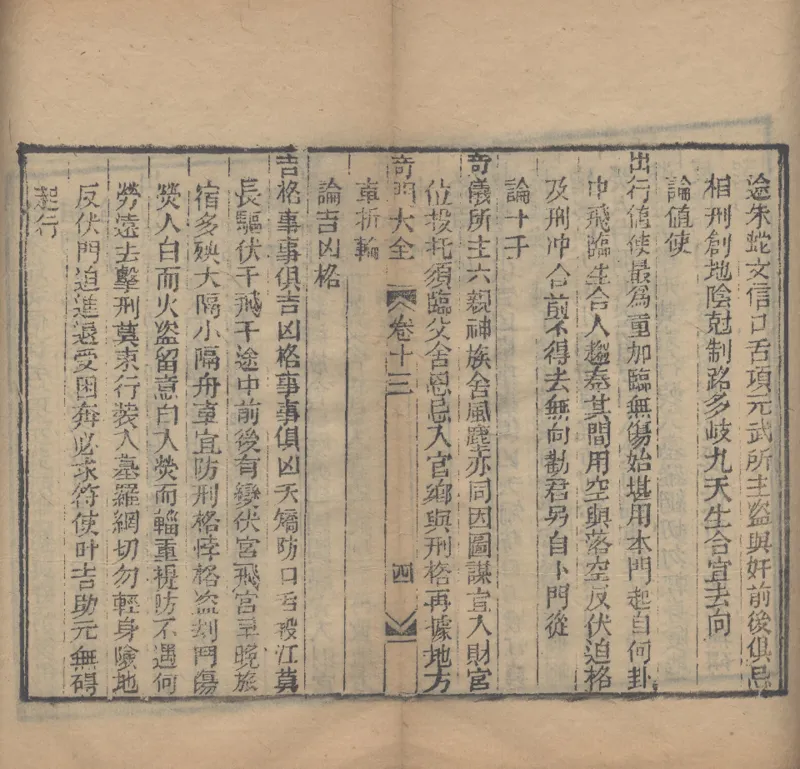 途朱蛇文信口舌項元武所主盜與奸前後俱忌
相刑創地陰尅制路多岐九天生合宜去向
論值使
出行值使最為重加臨無傷始堪用本門起自何卦
中飛臨生合人趨奉其間用空與落空反伏迫格
及刑冲合前不得去無向勸君另自卜門從
論十干
奇儀所主六親神族舍風塵亦同因圖謀宜入財官
位投托須臨父舍恩忌入官鄉與刑格再據地方
奇門大全 卷十三 四
車折輪
論吉凶格
吉格事事俱吉凶格事事俱凶夭矯防口舌投江莫
長驅伏干飛干途中前後有變伏宮飛宮早晚旅
宿多殃大隔小隔舟車宜防刑格悖格盜刼門傷
熒入白而火盜留意白入熒而輜重提防不遇何
勞遠去擊刑莫束行装入墓羅網切勿輕身險地
反伏門迫進退受困奔必求符使叶吉助元無碍
起行